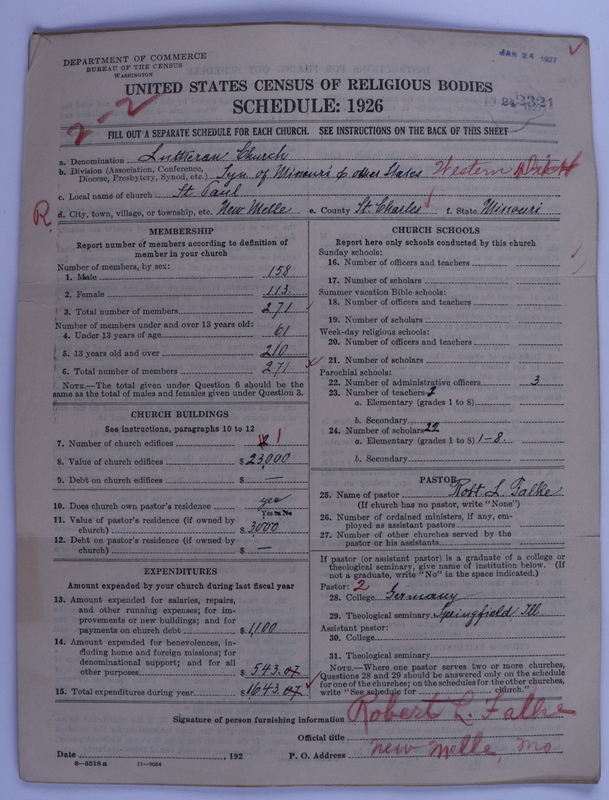 DEPARTMENT OF COMMERCE
BUREAU OF THE CENSUS
WASHINGTON
JAN 24 1927
UNITED STATES CENSUS OF RELIGIOUS BODIES
SCHEDULE: 1926
2-2
FILL OUT A SEPARATE SCHEDULE FOR EACH CHURCH. SEE INSTRUCTIONS ON THE BACK OF THIS SHEET
a. Denomination Lutheran Church
b. Division (Association, Conference, Diocese, Presbytery, Synod, etc.) Syn. of Missouri & other States Western
c. Local name of church St. Paul
R d. City, town, village, or township, etc. New Melle e. County St. Charles f. State Missouri
MEMBERSHIP
Report number of members according to definition of
member in your church
Number of members, by sex:
1. Male 158
2. Female 113
3. Total number of members 271
Number of members under and over 13 years old:
4. Under 13 years of age 61
5. 13 years old and over 210
6. Total number of members 271
NOTE.—The total given under Question 6 should be the
same as the total of males and females given under Question 3.
CHURCH BUILDINGS
See instructions, paragraphs 10 to 12
7. Number of church edifices 1
8. Value of church edifices $ 23,000
9. Debt on church edifices $ —
10. Does church own pastor's residence yes
Yes or No
11. Value of pastor's residence (if owned by
church) $ 3000
12. Debt on pastor's residence (if owned by
church) $ —
EXPENDITURES
Amount expended by your church during last fiscal year
13. Amount expended for salaries, repairs,
and other running expenses; for im-
provements or new buildings; and for
payments on church debt $ 1,100
14. Amount expended for benevolences, in-
cluding home and foreign missions; for
denominational support; and for all
other purposes $ 543.07
15. Total expenditures during year $ 1643.07
CHURCH SCHOOLS
Report here only schools conducted by this church
Sunday schools:
16. Number of officers and teachers
17. Number of scholars
Summer vacation Bible schools:
18. Number of officers and teachers
19. Number of scholars
Week-day religious schools:
20. Number of officers and teachers
21. Number of scholars
Parochial schools:
22. Number of administrative officers 3
23. Number of teachers
a. Elementary (grades 1 to 8)
b. Secondary
24. Number of scholars 22
a. Elementary (grades 1 to 8) 1-8
b. Secondary
PASTOR
25. Name of pastor Robt. L. Falke
(If church has no pastor, write "None")
26. Number of ordained ministers, if any, em-
ployed as assistant pastors
27. Number of other churches served by the
pastor or his assistants
If pastor (or assistant pastor) is a graduate of a college or
theological seminary, give name of institution below. (If
not a graduate, write "No" in the space indicated.)
Pastor: 2
28. College Germany
29. Theological seminary Springfield Ill
Assistant pastor:
30. College
31. Theological seminary
NOTE.—Where one pastor serves two or more churches,
Questions 28 and 29 should be answered only on the schedule
for one of the churches; on the schedules for the other churches,
write "See schedule for church."
Signature of person furnishing information Robert L. Falke
Official title
Date , 192 P. O. Address New Melle, Mo
8-5518a 11-9034